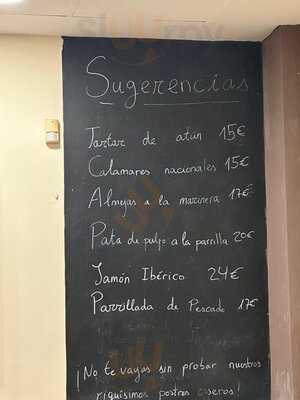 Sugerencias
Tartar de atún 15€
Calamares nacionales 15€
Almejas a la marinera 17€
Pata de pulpo a la parrilla 20€
Jamón Ibérico 24€
Parrillada de Pescado 17€
¡No te vayas sin probar nuestros
riquísimos postres caseros!